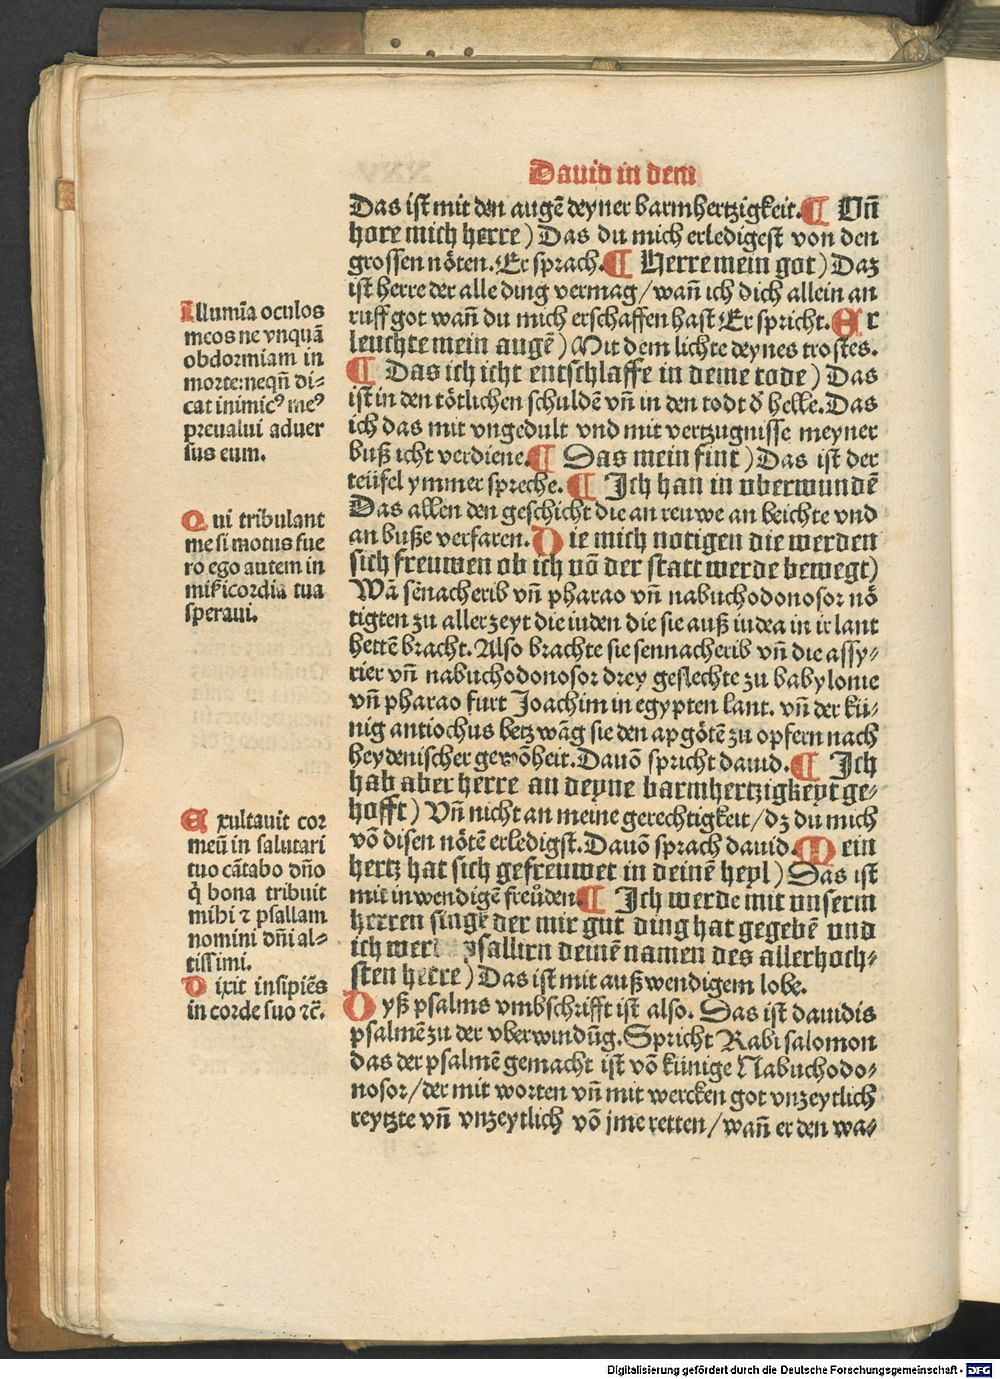 Dauid in dem
Das ist mit den augẽ deyner barmhertzigkeit. ¶ Vñ
hore mich herre) Das du mich erledigest von den
grossen nöten. Er sprach. ¶ Herre mein got) Daz
ist herre der alle ding vermag / wañ ich dich allein an
ruff got wañ du mich erschaffen hast Er spricht. Er
leuchte mein augẽ) Mit dem lichte deynes trostes.
¶ Das ich icht entschlaffe in deme tode) Das
ist in den tötlichen schuldẽ vñ in den todt d̕ helle. Das
ich das mit vngedult vnd mit vertzugnisse meyner
buß icht verdiene. ¶ Das mein fint) Das ist der
teüfel ymmer spreche. ¶ Ich han in vberwundẽ
Das allen den geschicht die an reuwe an beichte vnd
an buße verfaren. Die mich notigen die werden
sich freuwen ob ich võ der statt werde bewegt)
Wã senacherib vñ pharao vñ nabuchodonosor nö
tigten zu aller zeyt die iuden die sie auß iudea in ir lant
hettẽ bracht. Also brachte sie sennacherib vñ die assy⸗
rier vñ nabuchodonosor drey geslechte zu babylonie
vñ pharao furt Joachim in egypten lant. vñ der kü⸗
nig antiochus betzwãg sie den apgötẽ zu opfern nach
heydenischer gewõheit. Dauõ spricht dauid. ¶ Ich
hab aber herre an deyne barmhertzigkeyt ge⸗
hofft) Vñ nicht an meine gerechtigkeit / dz du mich
võ disen nötẽ erledigst. Dauõ sprach dauid. Mein
hertz hat sich gefreuwet in deinẽ heyl) Das ist
mit inwendigẽ freůden. ¶ Ich werde mit vnserm
herren singẽ der mir gut ding hat gegebẽ vnd
ich wer psallirn deinẽ namen des allerhoch⸗
sten herre) Das ist mit außwendigem lobe.
Dyß psalms vmbschrifft ist also. Das ist dauidis
psalmẽ zu der vberwindũg. Spricht Rabi salomon
das der psalmẽ gemacht ist võ künige Nabuchodo⸗
nosor / der mit worten vñ mit wercken got vnzeytlich
reytzte vñ vnzeytlich võ jme retten / wañ er den wa⸗
Illumĩa oculos
meos ne vnquã
obdormiam in
morte: neqñ di⸗
cat inimicꝰ meꝰ
preualui aduer
sus eum.
Qui tribulant
me si motus fue
ro ego autem in
mĩsicordia tua
speraui.
Exultauit cor
meũ in salutari
tuo cãtabo dño
q̃ bona tribuit
mihi ⁊ psallam
nomini dñi al⸗
tissimi.
Dixit insipiẽs
in corde suo ⁊c̃.
Digitalisierung gefördert durch die Deutsche Forschungsgemeinschaft - DFG